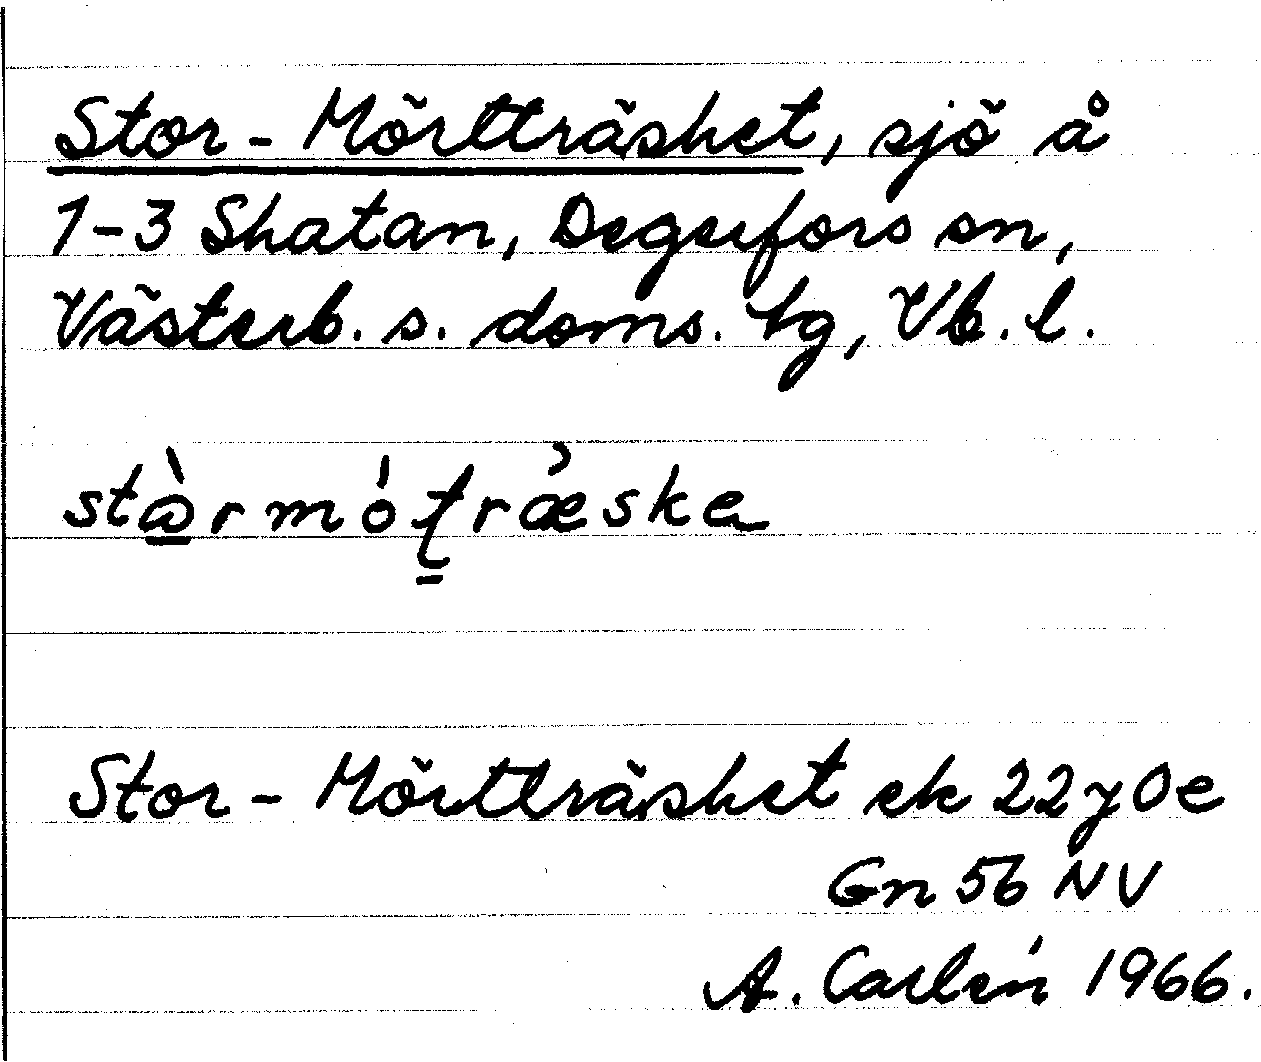 Stor-Mörtträsket, sjö å
1-3 Skatan, Degerfors sn,
Västerb. s. doms. tg, Vb. l.
stàrmótræska
Stor-Mörtträsket ek 22y0e
Gn 56 NV
A. Carlén 1966.